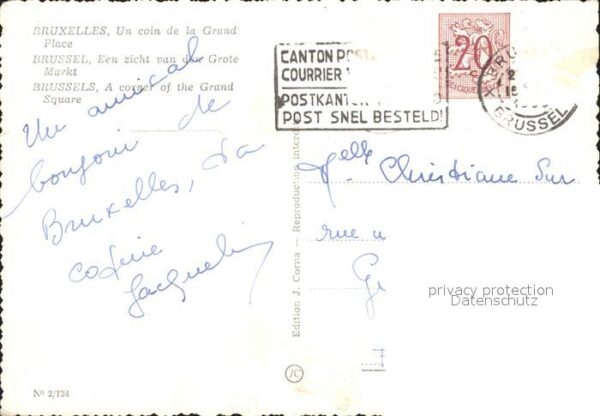 BRUXELLES, Un coin de la Grand
Place
BRUSSEL, Een zicht van der Grote
Markt
BRUSSELS, A corner of the Grand
Square
Un amical
bonjour de
Bruxelles, ta
cousine
Jacqueline
No 2/124
Edition J. Corna — Reproduction
JC
CANTON
COURRIER
POSTKAN
POST SNEL BESTELD!
20
BELGIQUE
BRUSSEL
Melle Christiane Sur
rue
privacy protection
Datenschutz